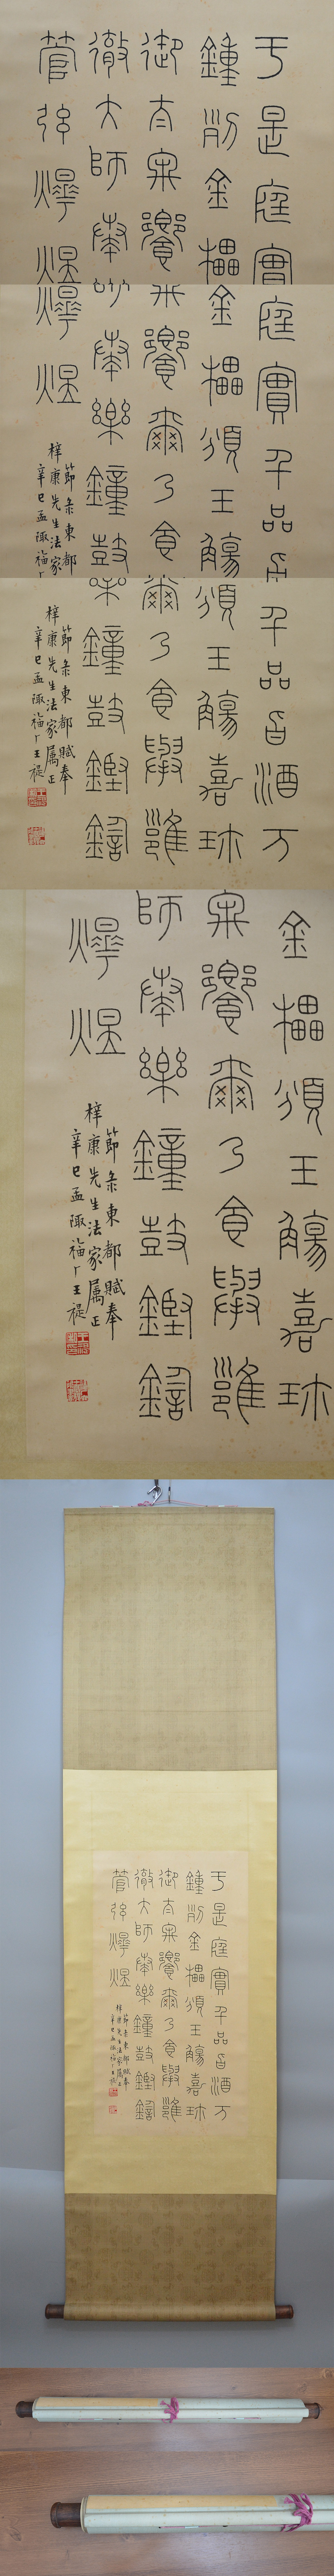 于是庭實千品旨酒万
鍾列金罍頒玉觴嘉珎
御太牢饗爾乃食舉雝
徹大師奏樂鐘鼓鏗鍧
管弦燁煜
節彔東都賦奉
梓康先生法家屬正
辛巳孟陬福厂王禔